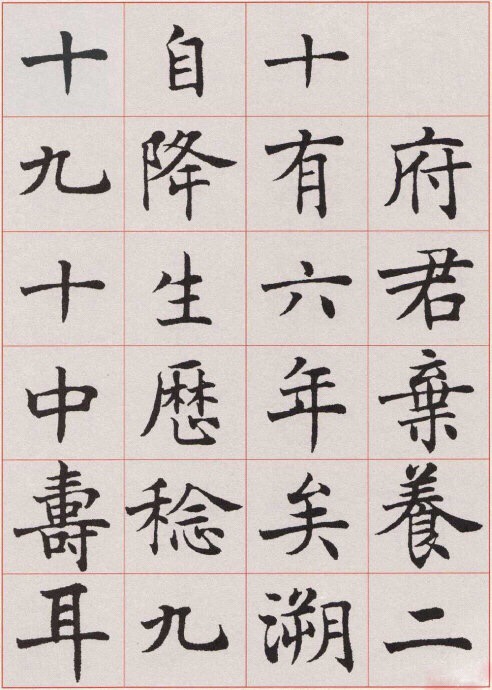 府君棄養二
十有六年矣溯
自降生歴稔九
十九十中壽耳